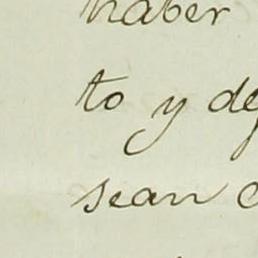 haber
to y de
sean